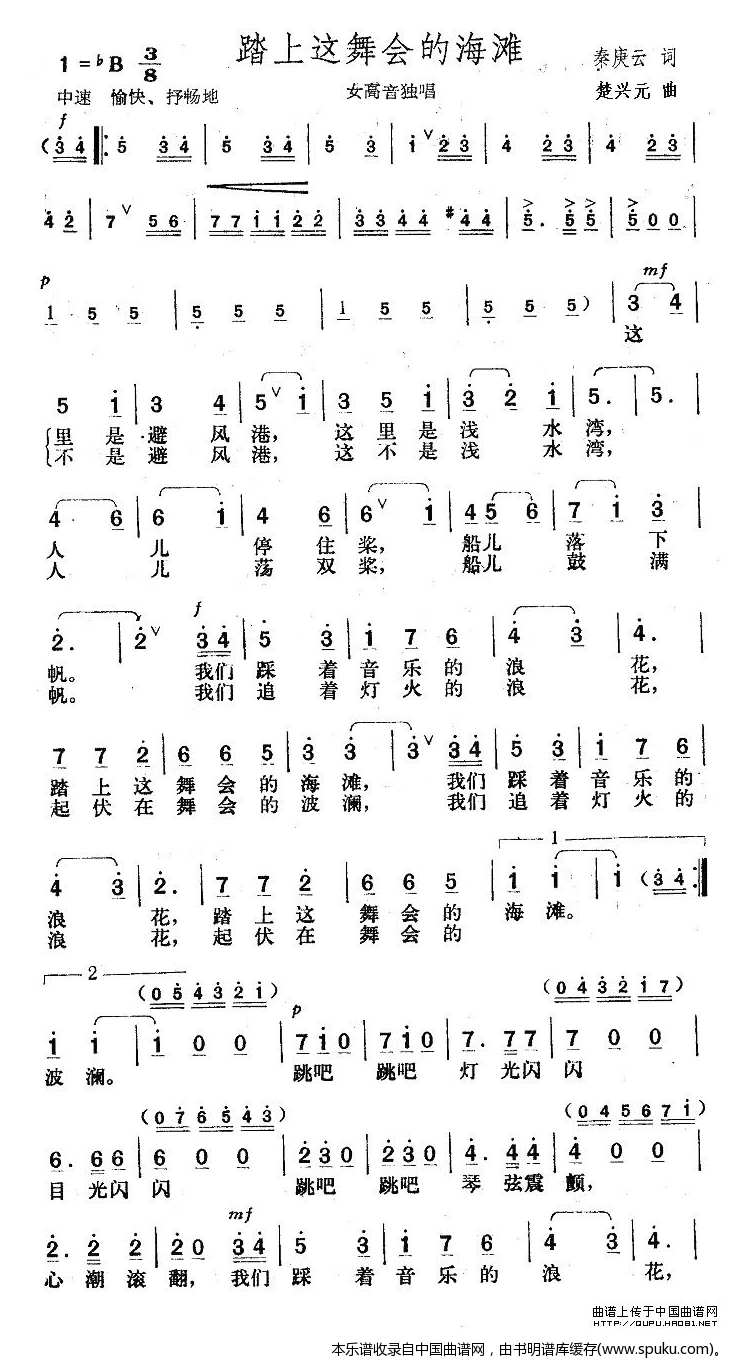 踏上这舞会的海滩
1=♭B 3/8
秦庚云 词
中速 愉快、抒畅地
女高音独唱
楚兴元 曲
f
(3 4 |: 5 3 4 | 5 3 4 | 5 3 | 1 ∨ 2 3 | 4 2 3 | 4 2 3 |
4 2 | 7 ∨ 5 6 | 7 7 1 1 2 2 | 3 3 4 4 #4 4 | 5. 5 5 | 5 0 0 |
p
mf
1 5 5 | 5 5 5 | 1 5 5 | 5 5 5) | 3 4 |
这
5 1 | 3 4 | 5 ∨ 1 | 3 5 1 | 3 2 1 | 5. | 5. |
里是避风港，这里是浅水湾，
不是避风港，这不是浅水湾，
4 6 | 6 1 | 4 6 | 6 ∨ 1 | 4 5 6 | 7 1 3 |
人儿停住桨，船儿落下
人儿荡双桨，船儿鼓满
f
2. | 2 ∨ 3 4 | 5 3 | 1 7 6 | 4 3 | 4. |
帆。我们踩着音乐的浪花，
帆。我们追着灯火的浪花，
7 7 2 | 6 6 5 | 3 3 | 3 ∨ 3 4 | 5 3 | 1 7 6 |
踏上这舞会的海滩，我们踩着音乐的
起伏在舞会的波澜，我们追着灯火的
1
4 3 | 2. | 7 7 2 | 6 6 5 | 1 1 | 1 (3 4 :|
浪花，踏上这舞会的海滩。
浪花，起伏在舞会的
2
(0 5 4 3 2 1)
(0 4 3 2 1 7)
p
1 1 | 1 0 0 | 7 1 0 | 7 1 0 | 7. 7 7 | 7 0 0 |
波澜。跳吧跳吧灯光闪闪
(0 7 6 5 4 3)
(0 4 5 6 7 1)
6. 6 6 | 6 0 0 | 2 3 0 | 2 3 0 | 4. 4 4 | 4 0 0 |
目光闪闪跳吧跳吧琴弦震颤，
mf
2. 2 2 | 2 0 3 4 | 5 3 | 1 7 6 | 4 3 | 4. |
心潮滚翻，我们踩着音乐的浪花，
曲谱上传于中国曲谱网
HTTP://QUPU.HAO81.NET
本乐谱收录自中国曲谱网，由书明谱库缓存(www.spuku.com)。